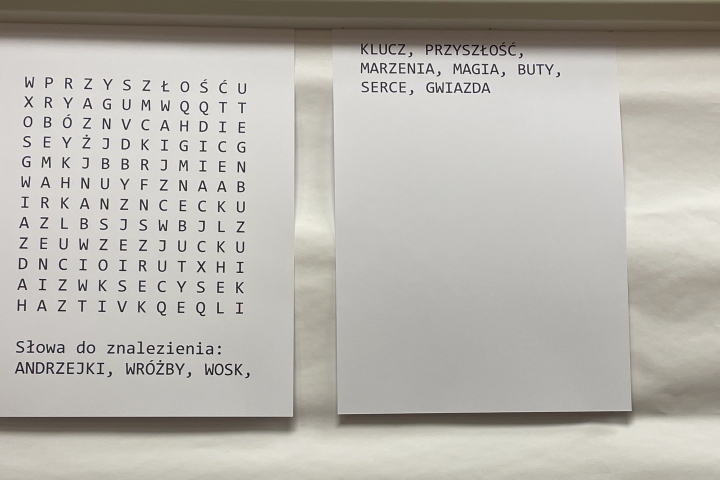 W P R Z Y S Z Ł O Ś Ć U
X R Y A G U M W Q Q T T
O B Ó Z N V C A H D I E
S E Y Ż J D K I G I C G
G M K J B B R J M I E N
W A H N U Y F Z N A A B
I R K A N Z N C E C K U
A Z L B S J S W B J L Z
Z E U W Z E Z J U C K U
D N C I O I R U T X H I
A I Z W K S E C Y S E K
H A Z T I V K Q E Q L I
Słowa do znalezienia:
ANDRZEJKI, WRÓŻBY, WOSK,
KLUCZ, PRZYSZŁOŚĆ,
MARZENIA, MAGIA, BUTY,
SERCE, GWIAZDA